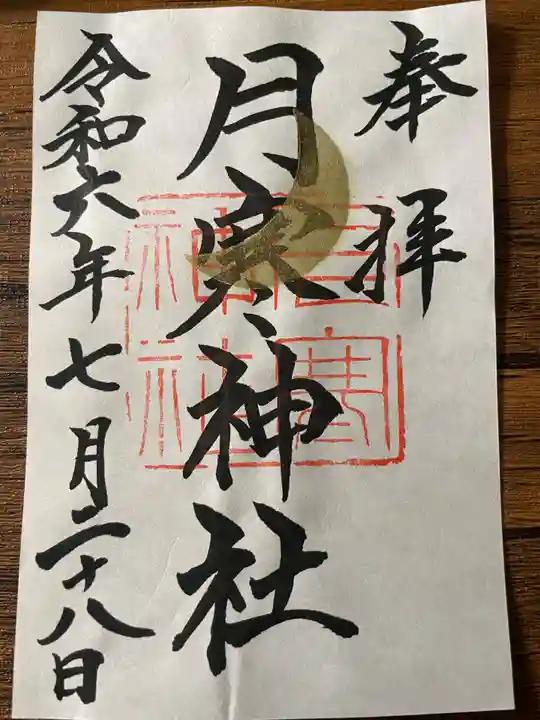 奉拝
月寒神社
月寒神社
令和六年七月二十八日